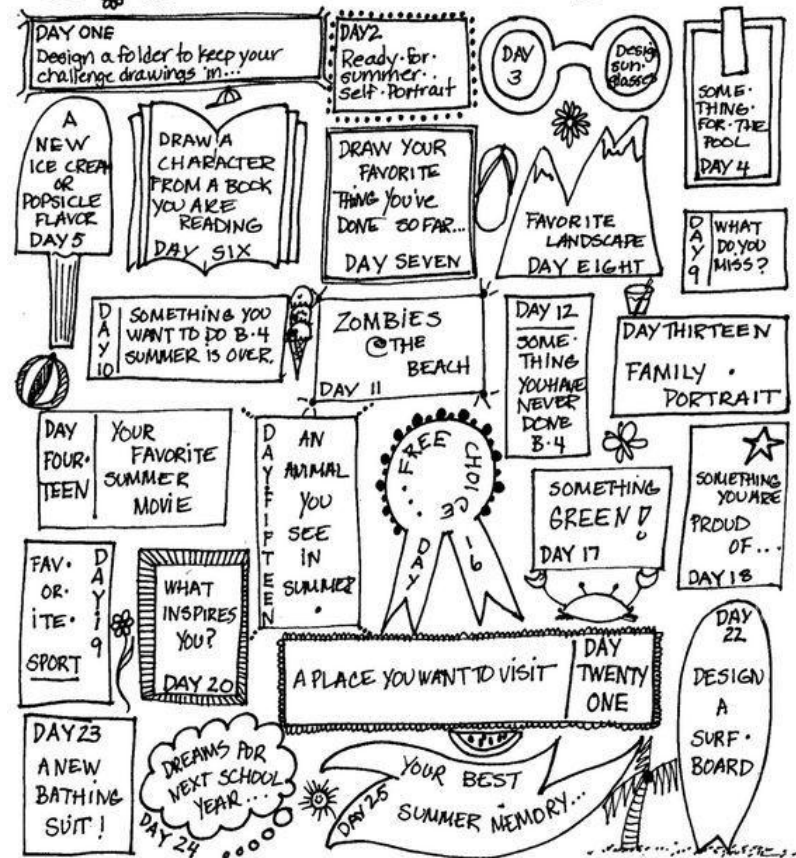 DAY ONE
Design a folder to keep your
challenge drawings in...
DAY 2
Ready.for.
summer..
self.Portrait
DAY
3
Design
sun.
glasses
SOME.
THING.
FOR.THE
POOL
DAY 4
A
NEW
ICE CREAM
OR
POPSICLE
FLAVOR
DAY 5
DRAW A
CHARACTER
FROM A BOOK
YOU ARE
READING
DAY SIX
DRAW YOUR
FAVORITE
THING You've
DONE SO FAR...
DAY SEVEN
FAVORITE
LANDSCAPE
DAY EIGHT
DAY 9
WHAT
DO YOU
MISS?
DAY 10
SOMETHING YOU
WANT TO DO B.4
SUMMER IS OVER.
ZOMBIES
@THE
BEACH
DAY 11
DAY 12
SOME.
THING
YOU HAVE
NEVER
DONE
B.4
DAY THIRTEEN
FAMILY .
PORTRAIT
DAY
FOUR.
TEEN
YOUR
FAVORITE
SUMMER
MOViE
DAY FIFTEEN
AN
ANIMAL
YOU
SEE
IN
SUMMER
.
...FREE CHOICE
DAY 16
SOMETHING
GREEN!
DAY 17
SOMETHING
YOU ARE
PROUD
OF...
DAY 18
FAV.
OR.
ITE.
SPORT
DAY 19
WHAT
INSPIRES
YOU?
DAY 20
A PLACE YOU WANT TO VISIT
DAY
TWENTY
ONE
DAY
22
DESIGN
A
SURF.
BOARD
DAY 23
A NEW
BATHING
SUIT!
DREAMS FOR
NEXT SCHOOL
YEAR...
DAY 24
YOUR BEST
SUMMER MEMORY...
DAY 25